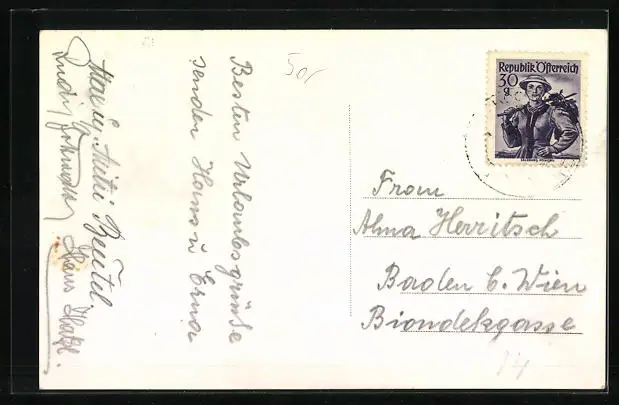 50,-
Besten Urlaubsgrüße
senden Hans u Erna
Beutel.
Hans
Republik Österreich
30 g
Frau
Alma Herritsch
Baden b. Wien
Biondekgasse